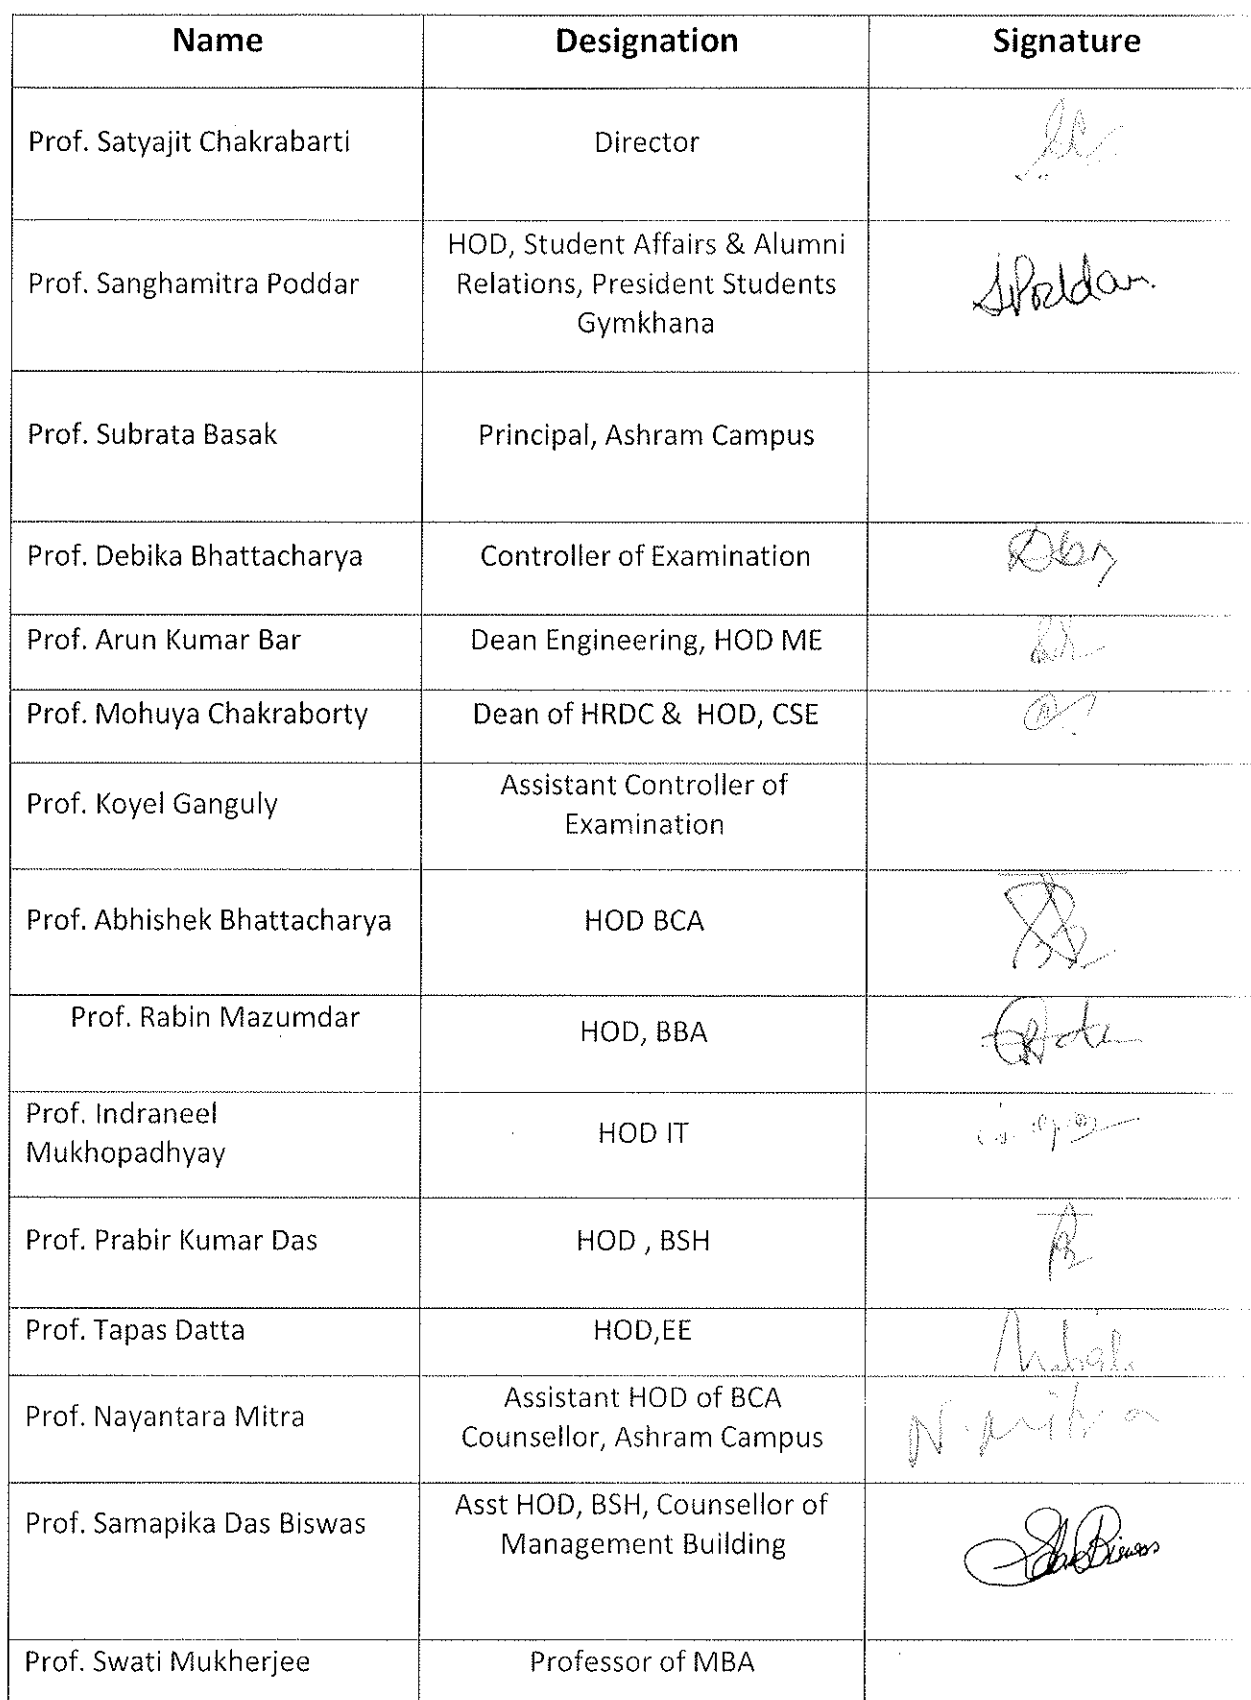 Name Designation Signature
Prof. Satyajit Chakrabarti Director
HOD, Student Affairs & Alumni
Prof. Sanghamitra Poddar Relations, President Students SPoddar.
Gymkhana
Prof. Subrata Basak Principal, Ashram Campus
Prof. Debika Bhattacharya Controller of Examination
Prof. Arun Kumar Bar Dean Engineering, HOD ME
Prof. Mohuya Chakraborty Dean of HRDC & HOD, CSE
Prof. Koyel Ganguly Assistant Controller of
Examination
Prof. Abhishek Bhattacharya HOD BCA
Prof. Rabin Mazumdar HOD, BBA
Prof. Indraneel
Mukhopadhyay HOD IT
Prof. Prabir Kumar Das HOD , BSH
Prof. Tapas Datta HOD,EE
Prof. Nayantara Mitra Assistant HOD of BCA N. Mitra
Counsellor, Ashram Campus
Prof. Samapika Das Biswas Asst HOD, BSH, Counsellor of
Management Building SDas Biswas
Prof. Swati Mukherjee Professor of MBA